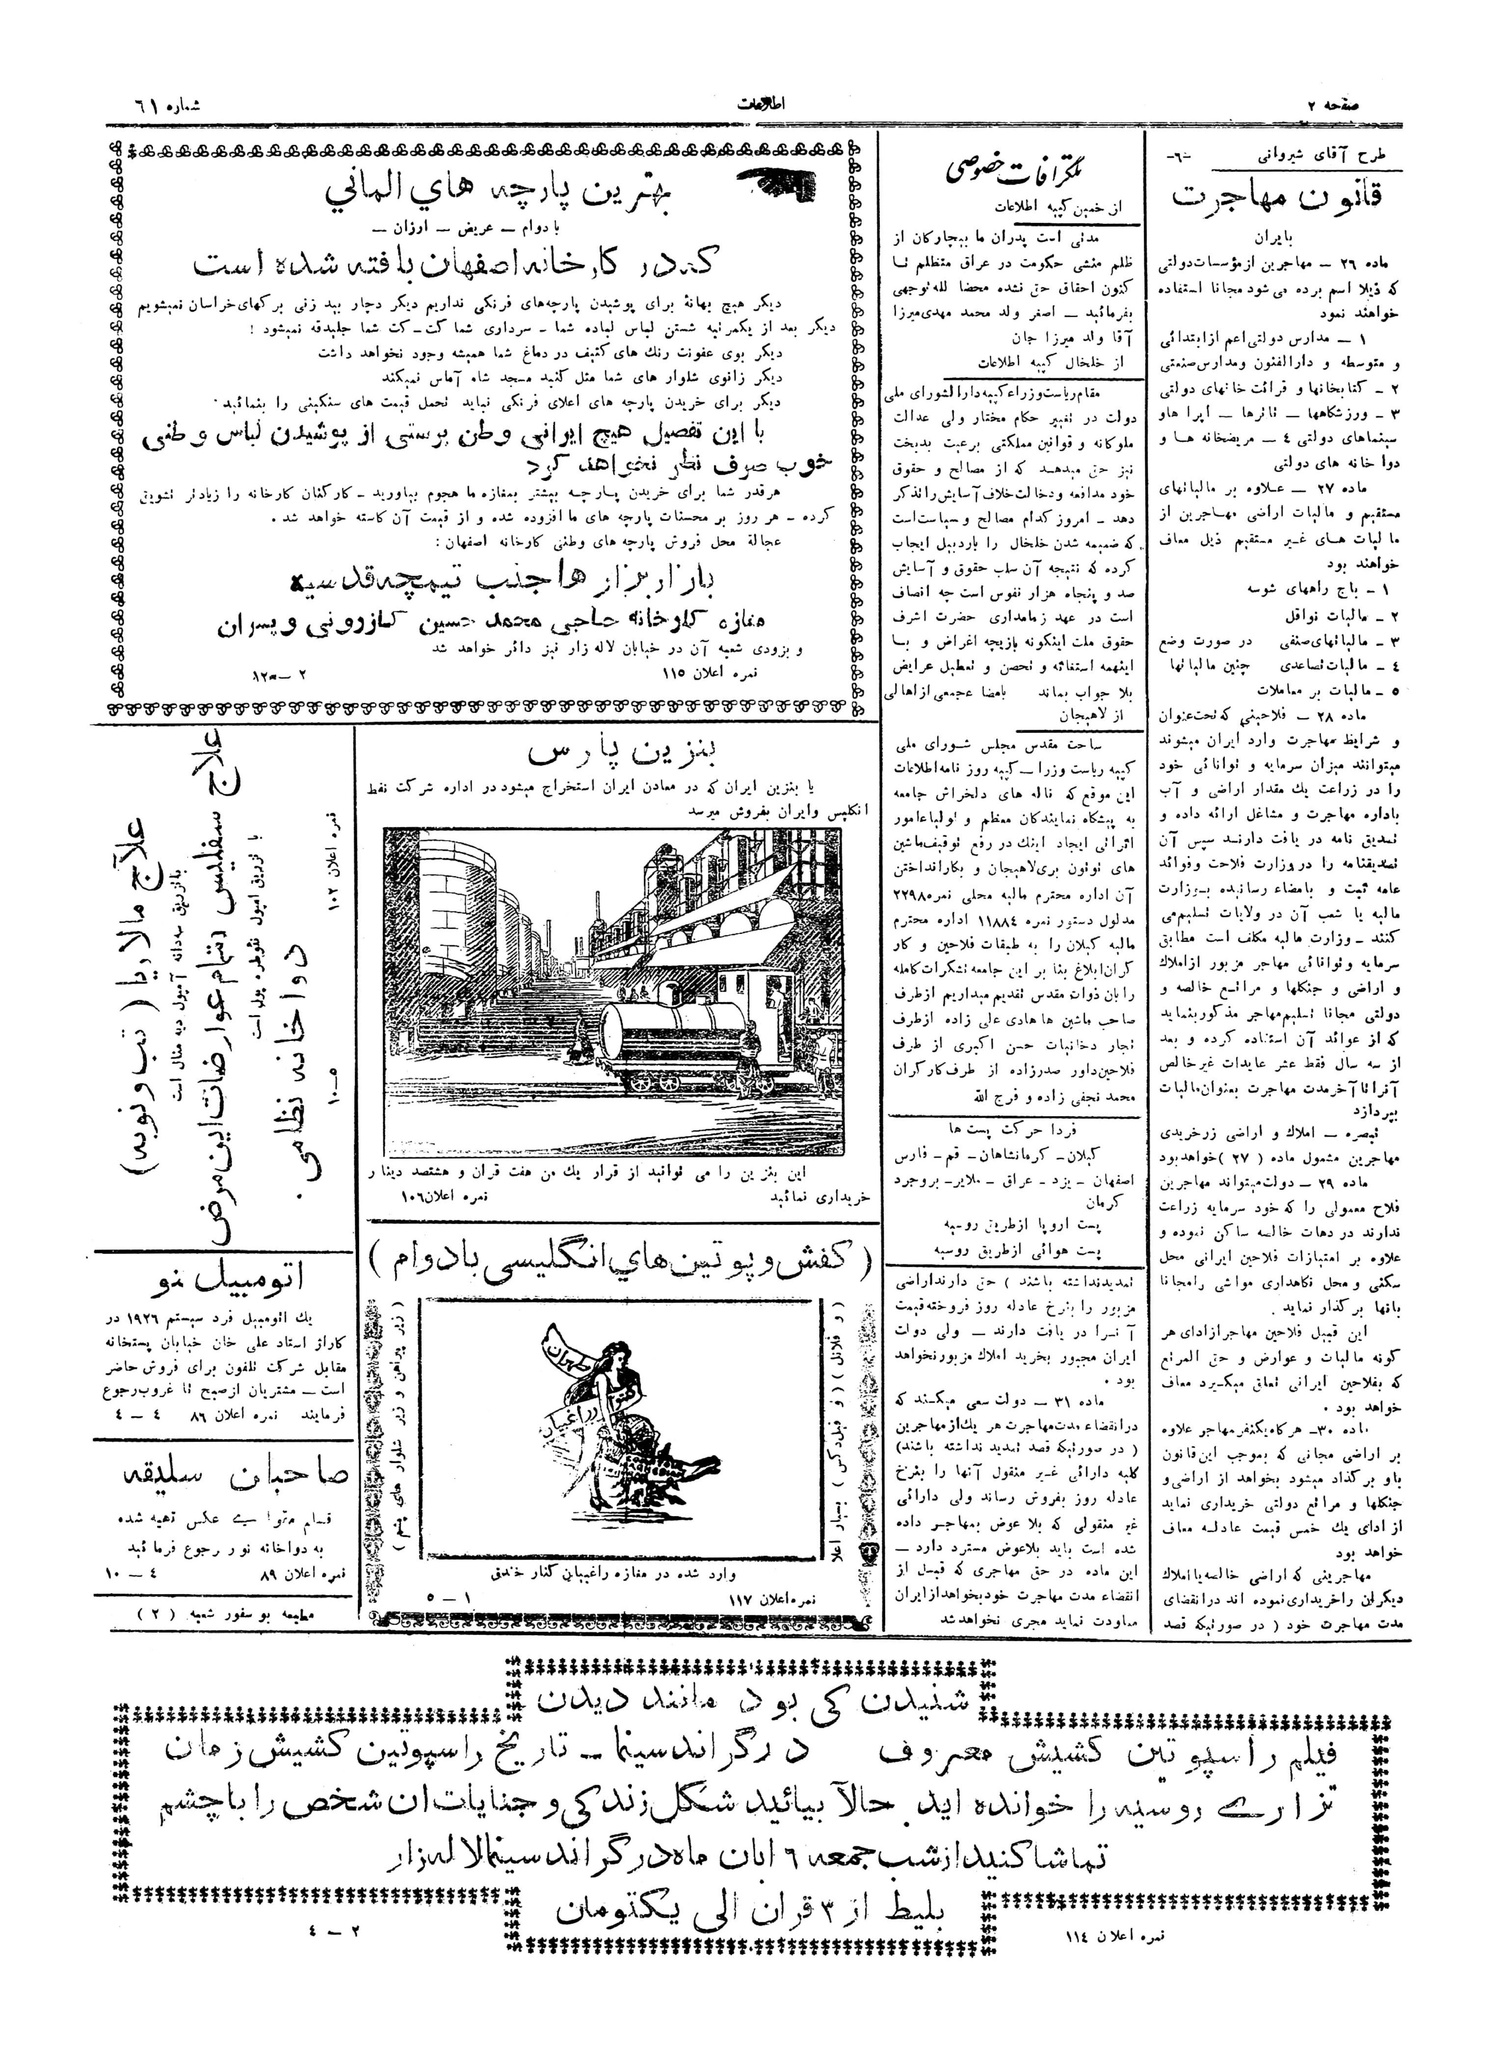 صفحه ۲
اطلاعات
شماره ٦١
طرح آقای شیروانی
-٦-
قانون مهاجرت
بایران
ماده ٢٦ ــ مهاجرین از مؤسسات دولتی
که ذیلا اسم برده می شود مجانا استفاده
خواهند نمود
١ ــ مدارس دولتی اعم از ابتدائی
و متوسطه و دارالفنون و مدارس صنعتی
٢ ــ کتابخانها و قرائت خانهای دولتی
٣ ــ ورزشگاهها ــ تاترها ــ اپرا هاو
سینماهای دولتی ٤ ــ مریضخانه ها و
دوا خانه های دولتی
ماده ٢٧ ــ علاوه بر مالیاتهای
مستقیم و مالیات اراضی مهاجرین از
مالیات های غیر مستقیم ذیل معاف
خواهند بود
١ - باج راههای شوسه
٢ ــ مالیات نواقل
٣ ــ مالیاتهای صنفی در صورت وضع
٤ ــ مالیات تصاعدی چنین مالیاتها
٥ ــ مالیات بر معاملات
ماده ٢٨ ــ فلاحینی که تحت عنوان
و شرایط مهاجرت وارد ایران میشوند
میتوانند میزان سرمایه و توانائی خود
را در زراعت یك مقدار اراضی و آب
باداره مهاجرت و مشاغل ارائه داده و
تصدیق نامه در یافت دارند سپس آن
تصدیقنامه را در وزارت فلاحت و فوائد
عامه ثبت و بامضاء رسانیده بوزارت
مالیه یا شعب آن در ولایات تسلیم می
کنند ــ وزارت مالیه مکلف است مطابق
سرمایه و توانائی مهاجر مزبور از املاك
و اراضی و جنگلها و مراتع خالصه و
دولتی مجانا تسلیم مهاجر مذکور بنماید
که از عوائد آن استفاده کرده و بعد
از سه سال فقط عشر عایدات غیرخالص
آنرا تا آخر مدت مهاجرت بعنوان مالیات
بپردازد
تبصره ــ املاك و اراضی زرخریدی
مهاجرین مشمول ماده ( ٢٧ )خواهدبود
ماده ٢٩ ــ دولت میتواند مهاجرین
فلاح معمولی را که خود سرمایه زراعت
ندارند در دهات خالصه ساکن نموده و
علاوه بر امتیازات فلاحین ایرانی محل
سکنی و محل نگاهداری مواشی رامجانا
بآنها برگذار نماید .
این قبیل فلاحین مهاجر ازادای هر
گونه مالیات و عوارض و حق المرتع
که بفلاحین ایرانی تعلق میگیرد معاف
خواهد بود .
ماده ٣٠ــ هرگاه یکنفر مهاجر علاوه
بر اراضی مجانی که بموجب این قانون
باو برگذاد میشود بخواهد از اراضی و
جنگلها و مراتع دولتی خریداری نماید
از ادای یك خمس قیمت عادله معاف
خواهد بود
مهاجرینی که اراضی خالصه یا املاك
دیگران را خریداری نموده اند در انقضای
مدت مهاجرت خود ( در صورتیکه قصد
تلگرافات خصوصی
از خمین کپیه اطلاعات
مدتی است پدران ما بیچارگان از
ظلم منشی حکومت در عراق متظلم تا
کنون احقاق حق نشده محضا لله توجهی
بفرمائید ــ اصغر ولد محمد مهدی میرزا
آقا ولد میرزا جان
از خلخال کپیه اطلاعات
مقام ریاست وزراء کپیه دارالشورای ملی
دولت در تغییر حکام مختار ولی عدالت
ملوکانه و قوانین مملکتی برعیت بدبخت
نیز حق میدهد که از مصالح و حقوق
خود مدافعه و دخالت خلاف آسایش را تذکر
دهد ــ امروز کدام مصالح و سیاست است
که ضمیمه شدن خلخال را باردبیل ایجاب
کرده که نتیجه آن سلب حقوق و آسایش
صد و پنجاه هزار نفوس است چه انصاف
است در عهد زمامداری حضرت اشرف
حقوق ملت اینگونه بازیچه اغراض و با
اینهمه استغاثه و تحصن و تعطیل عرایض
بلا جواب بماند بامضا عجمعی از اهالی
از لاهیجان
ساحت مقدس مجلس شورای ملی
کپیه ریاست وزرا ــ کپیه روز نامه اطلاعات
این موقع که ناله های دلخراش جامعه
به پیشگاه نمایندگان معظم و اولیاء امور
اثراتی ایجاد اینك در رفع توقیف ماشین
های توتون بری لاهیجان و بکار انداختن
آن اداره محترم مالیه محلی نمره ٢٢٩٨
مدلول دستور نمره ١١٨٨٤ اداره محترم
مالیه گیلان را به طبقات فلاحین و کار
گران ابلاغ بنا بر این جامعه تشکرات کامله
را بان ذوات مقدس تقدیم میداریم از طرف
صاحب ماشین ها هادی علی زاده از طرف
تجار دخانیات حسن اکبری از طرف
فلاحین داور صدرزاده از طرف کارگران
محمد نجفی زاده و فرج الله
فردا حرکت پست ها
گیلان ــ کرمانشاهان ــ قم ــ فارس
اصفهان ــ یزد ــ عراق ــ ملایر ــ بروجرد
کرمان
پست اروپا از طریق روسیه
پست هوائی از طریق روسیه
تمدید نداشته باشند ) حق دارند اراضی
مزبور را بنرخ عادله روز فروخته قیمت
آنرا در یافت دارند ــ ولی دولت
ایران مجبور بخرید املاك مزبور نخواهد
بود .
ماده ٣١ ــ دولت سعی میکند که
در انقضاء مدت مهاجرت هر یك از مهاجرین
( در صورتیکه قصد تمدید نداشته باشند)
کلیه دارائی غیر منقول آنها را بنرخ
عادله روز بفروش رساند ولی دارائی
غیر منقولی که بلا عوض بمهاجر داده
شده است باید بلاعوض مسترد دارد ــ
این ماده در حق مهاجری که قبل از
انقضاء مدت مهاجرت خود بخواهد از ایران
معاودت نماید مجری نخواهد شد
بهترین پارچه های المانی
با دوام ــ عریض ــ ارزان ــ
که در کارخانه اصفهان بافته شده است
دیگر هیچ بهانهٔ برای پوشیدن پارچه‌های فرنگی نداریم دیگر دچار بید زنی برکهای خراسان نمیشویم
دیگر بعد از یکمرتبه شستن لباس لباده شما ــ سرداری شما کت ــ کت شما جلیذقه نمیشود !
دیگر بوی عفونت رنك های کثیف در دماغ شما همیشه وجود نخواهد داشت
دیگر زانوی شلوار های شما مثل گنبد مسجد شاه آماس نمیکند
دیگر برای خریدن پارچه های اعلای فرنگی نباید تحمل قیمت های سنگینی را بنمائید .
با این تفصیل هیچ ایرانی وطن پرستی از پوشیدن لباس وطنی
خوب صرف نظر نخواهد کرد
هرقدر شما برای خریدن پارچه بیشتر بمغازه ما هجوم بیاورید ــ کارکنان کارخانه را زیادتر تشویق
کرده ــ هر روز بر محسنات پارچه های ما افزوده شده و از قیمت آن کاسته خواهد شد .
عجالة محل فروش پارچه های وطنی کارخانه اصفهان :
بازار بزازها جنب تیمچه قدسیه
مغازه کارخانه حاجی محمد حسین کازرونی و پسران
و بزودی شعبه آن در خیابان لاله زار نیز دائر خواهد شد
نمره اعلان ١١٥
بنزین پارس
یا بنزین ایران که در معادن ایران استخراج میشود در اداره شرکت نفط
انگلیس و ایران بفروش میرسد
این بنزین را می توانید از قرار یك من هفت قران و هشتصد دینار
خریداری نمائید
نمره اعلان ١٠٦
علاج مالاریا ( تب و نوبه )
علاج سفلیس و تمام عوارضات این مرض
دواخانه نظامی .
نمره اعلان ١٠٢
١٠ــ٥
( کفش و پوتین های انگلیسی با دوام )
( و فلانل ) ( و فیلدکس ) بسیار اعلا
( زیر پیراهن و زیر شلوار های پشم )
طهران
وارد شده در مغازه راغبیان کنار خندق
نمره اعلان ١١٧
١ ــ ٥
اتومبیل نو
یك اتومبیل فرد سیستم ١٩٢٦ در
کاراژ استاد علی خان خیابان پستخانه
مقابل شرکت تلفون برای فروش حاضر
است ــ مشتریان از صبح تا غروب رجوع
فرمایند نمره اعلان ٨٦ ٤ ــ ٤
صاحبان سلیقه
عکس تهیه شده
به دواخانه نور رجوع فرمائید
نمره اعلان ٨٩ ٤ ــ ١٠
مطبعه بوسفور شعبه ( ٢ )
شنیدن کی بود مانند دیدن
فیلم راسپوتین کشیش معروف در گراند سینما ــ تاریخ راسپوتین کشیش زمان
تزاری روسیه را خوانده اید حالا بیائید شکل زندگی و جنایات ان شخص را با چشم
تماشا کنید از شب جمعه ٦ ابان ماه در گراند سینما لاله زار
بلیط از ٣ قران الی یکتومان
نمره اعلان ١١٤
٢ ــ ٤